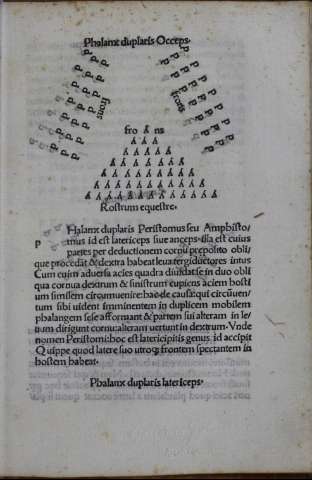 Phalanx duplaris Occeps.
frons
frons
frons
Rostrum equestre.
P
Halanx duplaris Peristomus seu Amphisto/
mus id est latericeps siue anceps illa est cuius
partes per deductionem cornu preposito obli/
que procedat & dextra habeat leua tergiductores intus
Cum enim aduersa acies quadra diuidat se in duo obli
qua cornua dextrum & sinistrum cupiens aciem hosti
um similem circumuenire: hac de causa: qui circũuen/
tum sibi uident imminentem in duplicem mobilem
phalangem sese afformant & partem sui alteram in le/
uum dirigunt cornu: alteram uertunt in dextrum. Vnde
nomen Peristomi: hoc est latericipitis genus id accipit
Quippe quod latere suo utroq; frontem spectantem in
hostem habeat.
Phalanx duplaris latericeps.